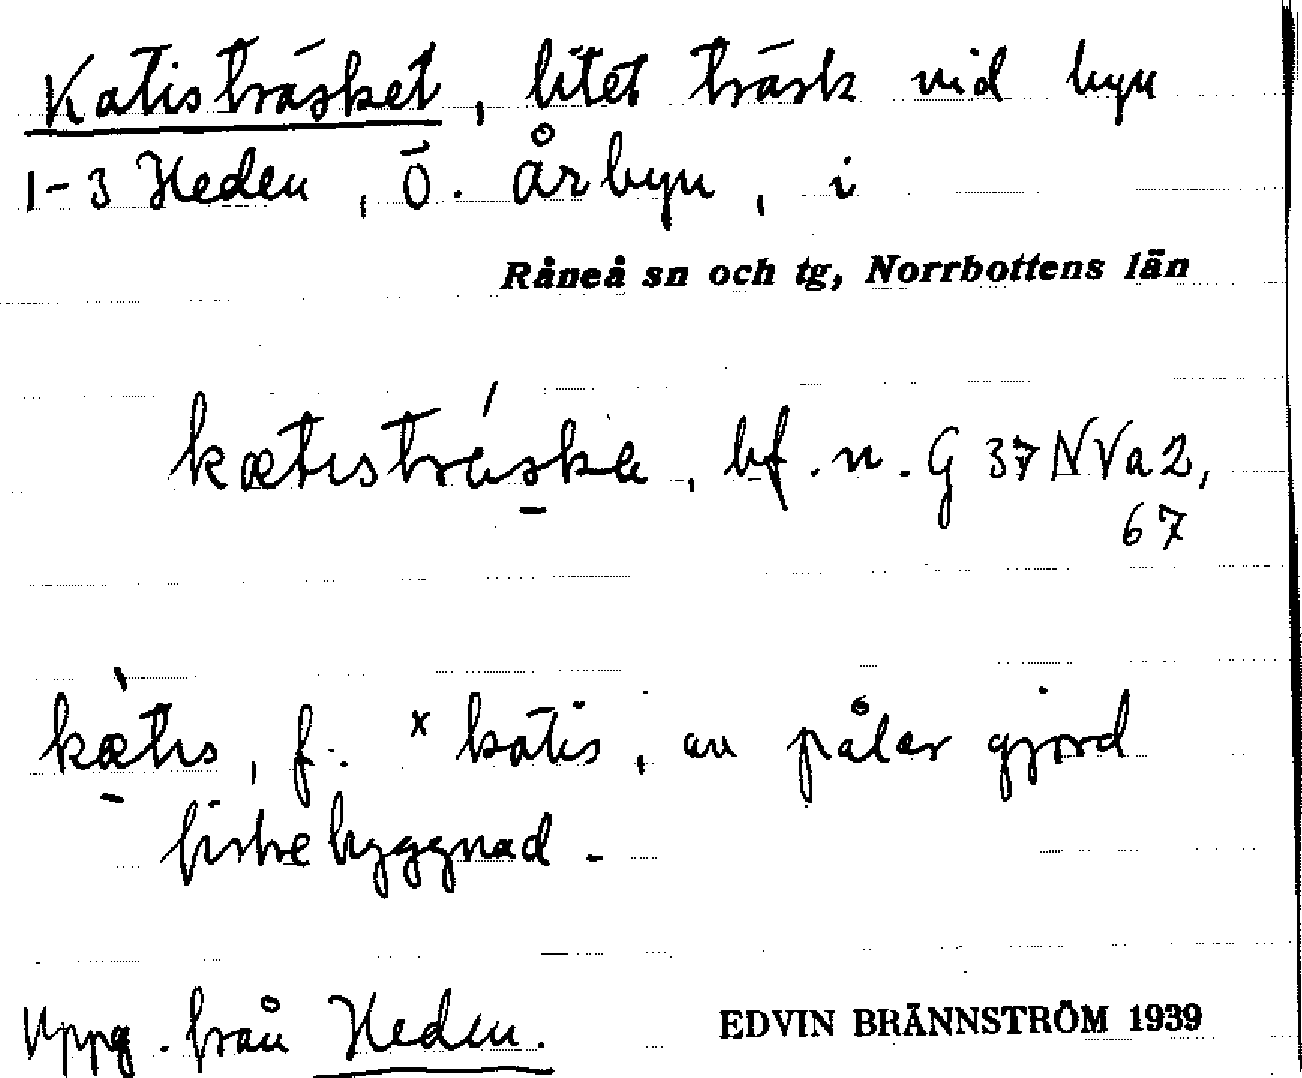 Katisträsket, litet träsk vid byn
1-3 Heden, Ö. Årbyn, i
Råneå sn och tg, Norrbottens län
kætısträska, bf. n. G 37 NVa2,
67
kætıs, f. x katis, av pålar gjord
fiskebyggnad.
Uppg. från Heden.
EDVIN BRÄNNSTRÖM 1939